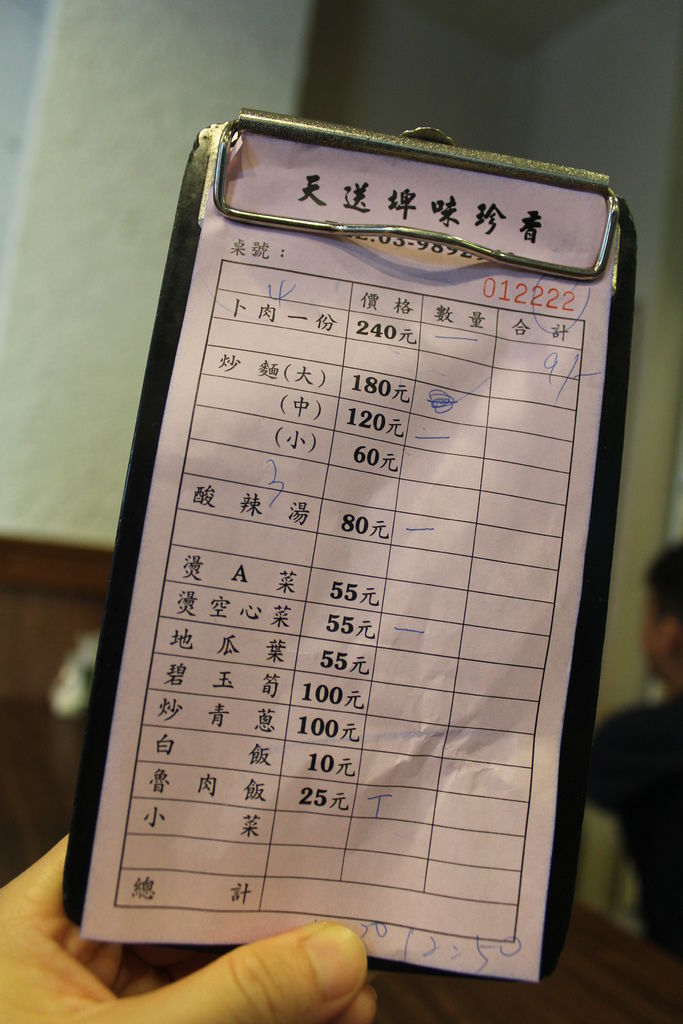 天送埤味珍香
桌號：
012222
價格 數量 合計
卜肉一份 240元 一
炒麵(大) 180元
(中) 120元 一
(小) 60元
酸辣湯 80元 一
燙A菜 55元
燙空心菜 55元 一
地瓜葉 55元
碧玉筍 100元
炒青蔥 100元
白飯 10元
魯肉飯 25元 T
小菜
總計
12:50